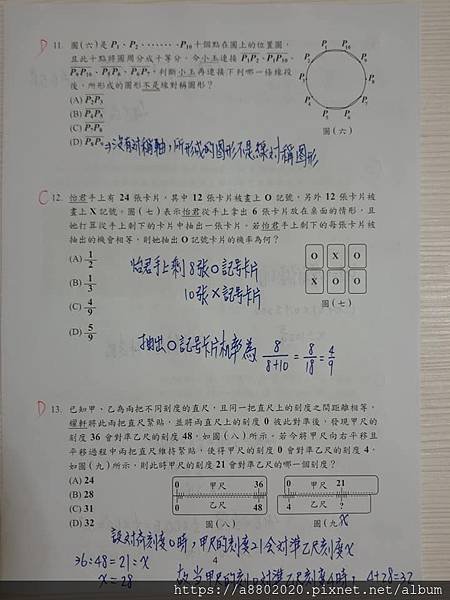 D 11. 圖(六)是 P₁、P₂、……、P₁₀ 十個點在圓上的位置圖,
且此十點將圓周分成十等分。今小玉連接 P₁P₂、P₁P₁₀、
判斷小玉再連接下列哪一條線段
後,所形成的圖形不是線對稱圖形?
(A) P₂P₃
(B) P₄P₅
(C) P₇P₈
(D) P₈P₉ ⇒沒有對稱軸,所形成的圖形不是線對稱圖形
圖(六)
C 12. 怡君手上有 24 張卡片,其中 12 張卡片被畫上 O 記號,另外 12 張卡片被
畫上 X 記號。圖(七)表示怡君從手上拿出 6 張卡片放在桌面的情形,且
她打算從手上剩下的卡片中抽出一張卡片。若怡君手上剩下的每張卡片被
抽出的機會相等,則她抽出 O 記號卡片的機率為何?
(A) 1/2
(B) 1/3
(C) 4/9
(D) 5/9
怡君手上剩 8張O記號卡片
10張X記號卡片
O X O
O X O
圖(七)
抽出O記號卡片機率為 8/(8+10) = 8/18 = 4/9
D 13. 已知甲、乙為兩把不同刻度的直尺,且同一把直尺上的刻度之間距離相等,
耀軒將此兩把直尺緊貼,並將兩直尺上的刻度 0 彼此對準後,發現甲尺的
刻度 36 會對準乙尺的刻度 48,如圖(八)所示。若今將甲尺向右平移且
平移過程中兩把直尺維持緊貼,使得甲尺的刻度 0 會對準乙尺的刻度 4,
如圖(九)所示,則此時甲尺的刻度 21 會對準乙尺的哪一個刻度?
(A) 24
(B) 28
(C) 31
(D) 32
0 甲尺 36
0 乙尺 48
圖(八)
0 甲尺 21
4 乙尺 ?
圖(九) x
設對齊刻度0時,甲尺的刻度21會對準乙尺刻度x
36:48=21:x
x=28
4
故當甲尺的刻0對準乙尺刻度4時, 4+28=32
https://a8802020.pixnet.net/album